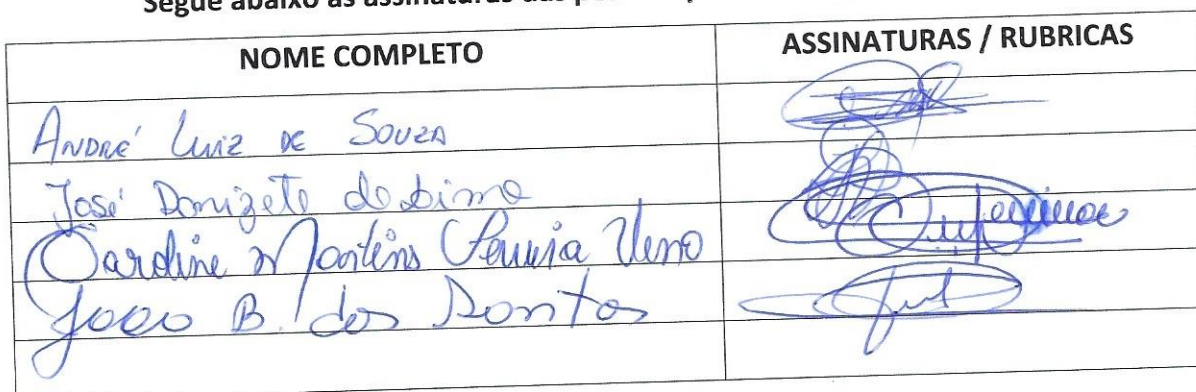 Segue abaixo as assinaturas das
NOME COMPLETO ASSINATURAS / RUBRICAS
ANDRÉ LUIZ DE SOUZA
José Donizete de Lima
Caroline Martins Pereira Ueno
João B. dos Santos